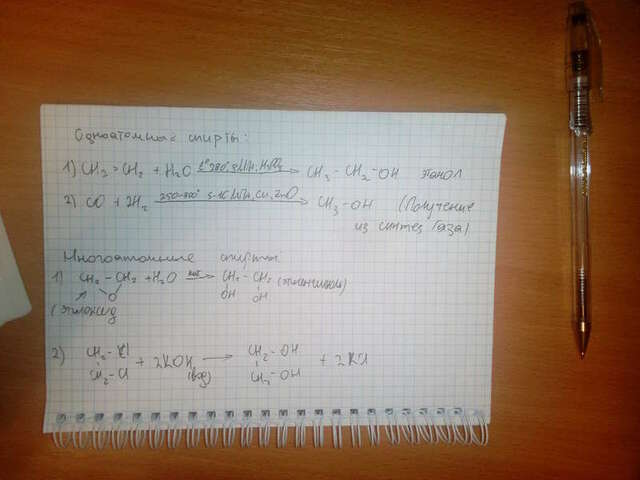 Одноатомные спирты:
1) CH2=CH2 + H2O t° 280°, 8МПа, H3PO4 → CH3 - CH2 - OH этанол
2) CO + 2H2 250-300° 5-10 МПа, Cu, ZnO → CH3 - OH (Получение
из синтез газа)
Многоатомные спирты:
1) CH2 - CH2 + H2O кат → CH2 - CH2 (этиленгликоль)
O OH OH
(этиленоксид
2) CH2 - Cl + 2KOH → CH2 - OH + 2KCl
CH2 - Cl (вод) CH2 - OH